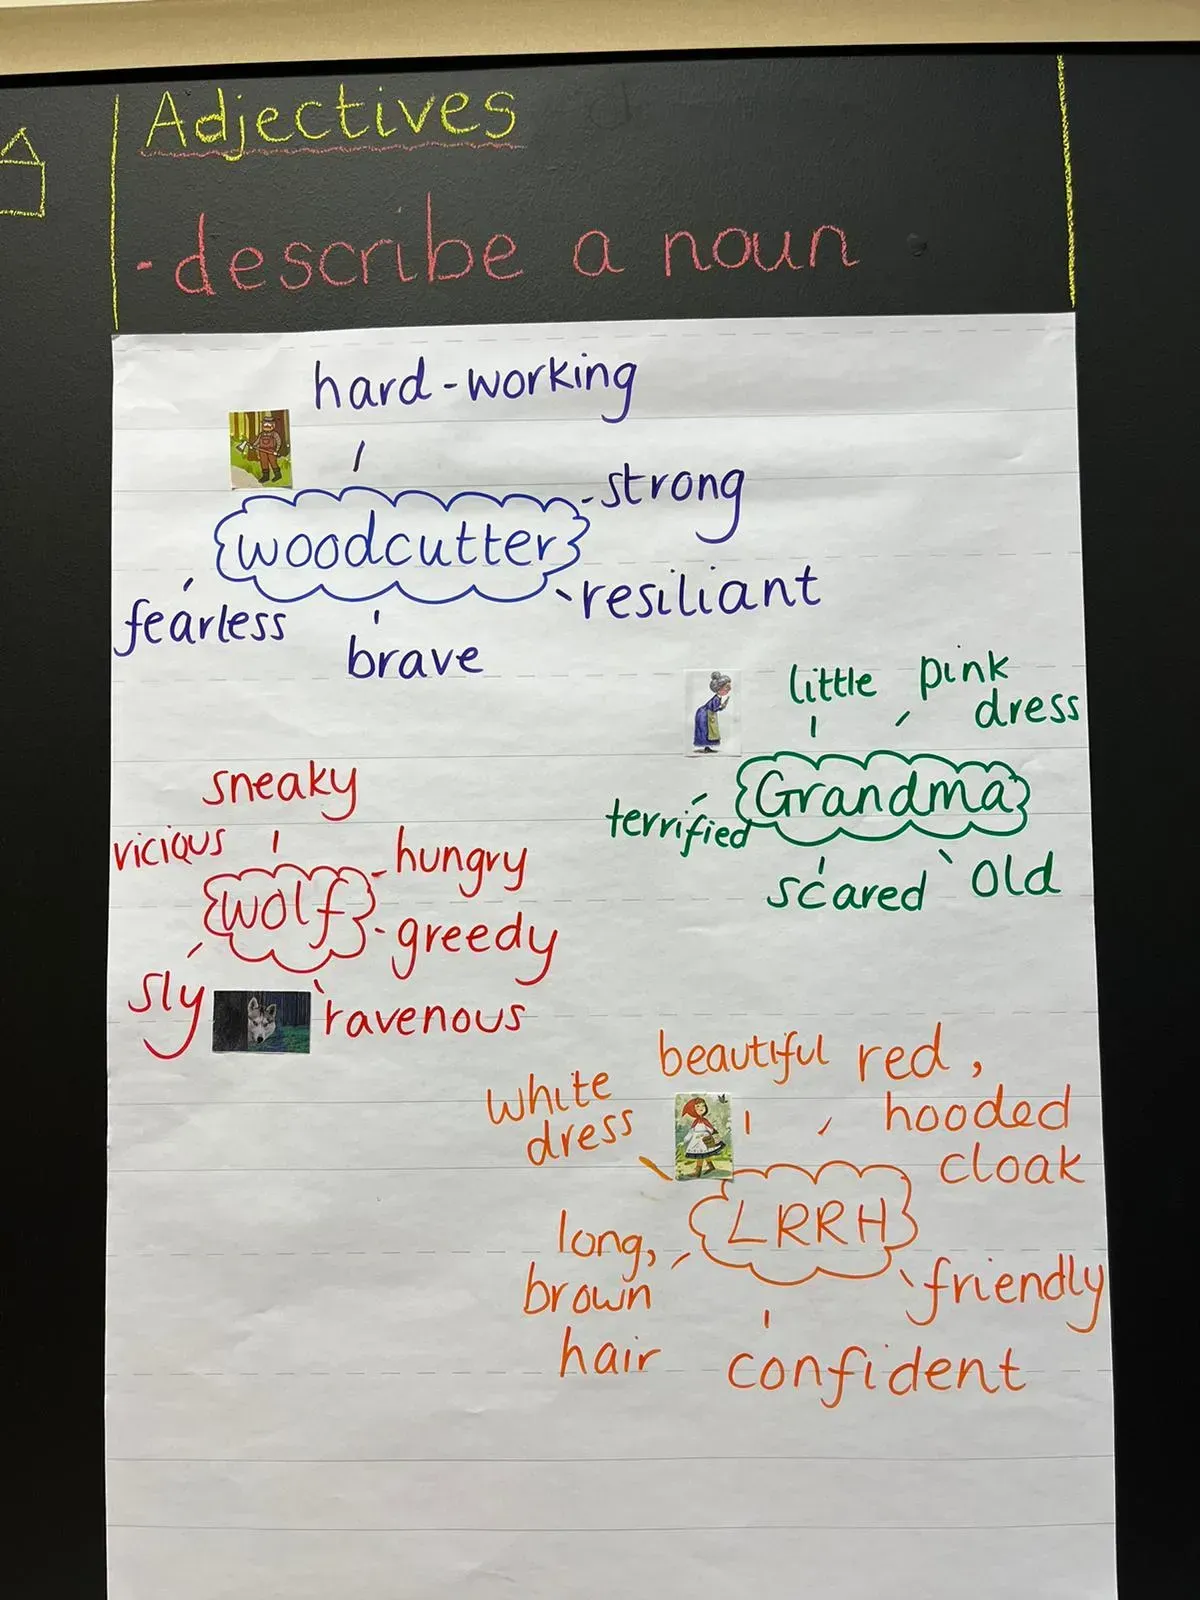 Adjectives
- describe a noun
hard-working
strong
woodcutter
resiliant
fearless
brave
little
pink
dress
Grandma
terrified
scared
old
sneaky
vicious
hungry
wolf
greedy
sly
ravenous
beautiful
red,
hooded
cloak
white
dress
LRRH
long,
brown
hair
friendly
confident